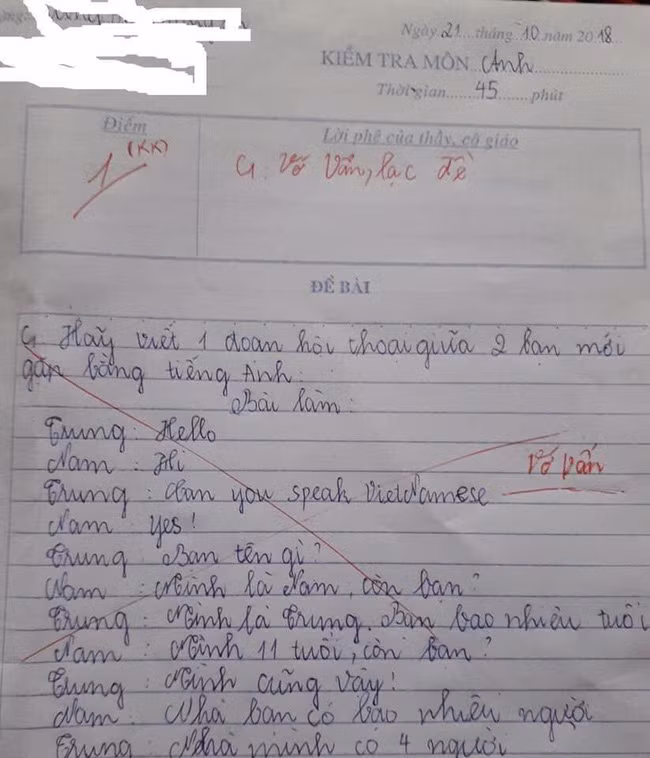 Ngày 21 tháng 10 năm 2018
KIỂM TRA MÔN Anh
Thời gian 45 phút
Điểm
Lời phê của thầy, cô giáo
1 (KK)
G: Vớ Vẩn, lạc đề
ĐỀ BÀI
Hãy viết 1 đoạn hội thoại giữa 2 bạn mới
gặp bằng tiếng Anh.
Bài làm:
Trung: Hello
Nam: Hi
Vớ vẩn
Trung: Can you speak VietNamese
Nam: Yes!
Trung: Bạn tên gì?
Nam: Mình là Nam, còn bạn?
Trung: Mình là Trung. Bạn bao nhiêu tuổi
Nam: Mình 11 tuổi, còn bạn?
Trung: Mình cũng vậy!
Nam: Nhà bạn có bao nhiêu người
Trung: Nhà mình có 4 người